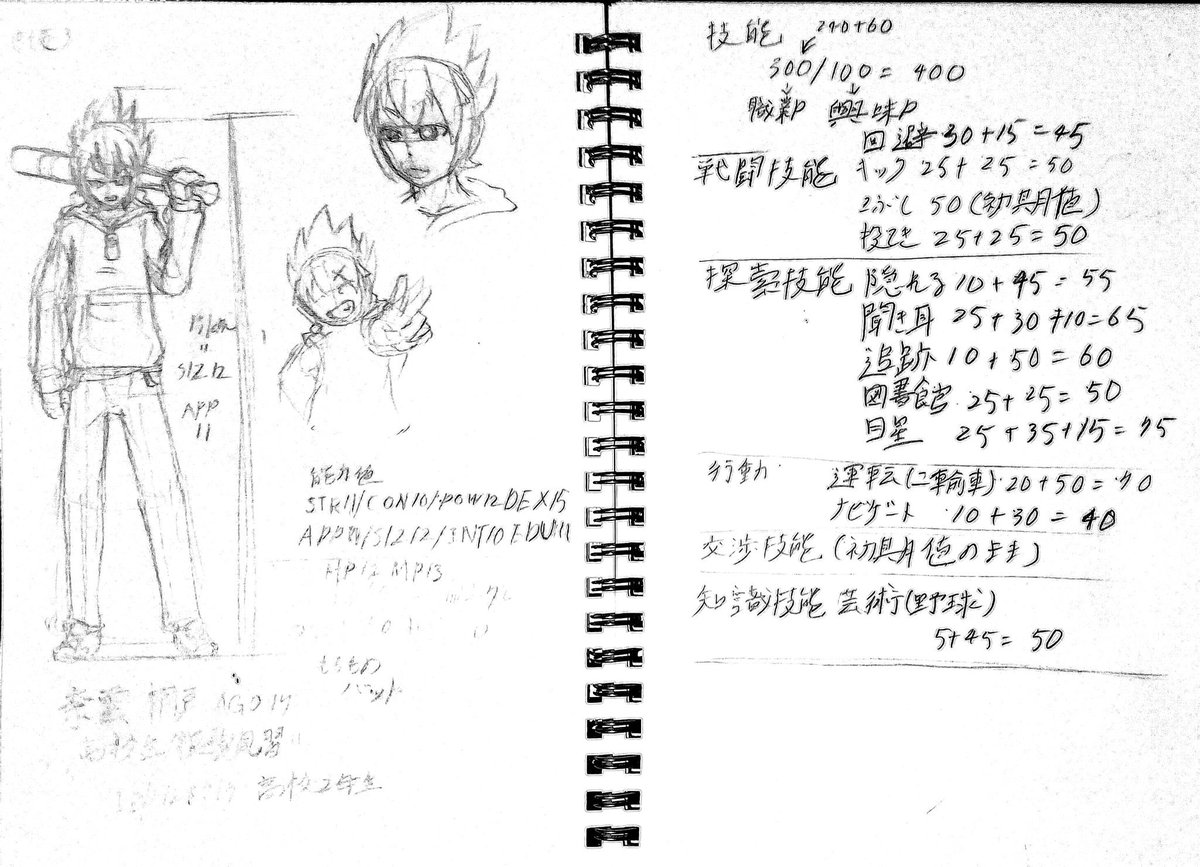 SIZ12
APP
11
能力値
STR11/CON10/POW12 DEX15
/SIZ12/INT10 EDU11
HP12 MP13
もちもの
バット
高校2年生
技能 240+60
300/100= 400
職業P 興味P
回避 30+15=45
戦闘技能 キック 25+25=50
こぶし 50(初期値)
投てき 25+25=50
探索技能 隠れる 10+45=55
聞き耳 25+30+10=65
追跡 10+50=60
図書館 25+25=50
目星 25+35+15=75
行動 運転(二輪車) 20+50=70
ナビゲート 10+30=40
交渉技能(初期値のまま)
知識技能 芸術(野球)
5+45= 50